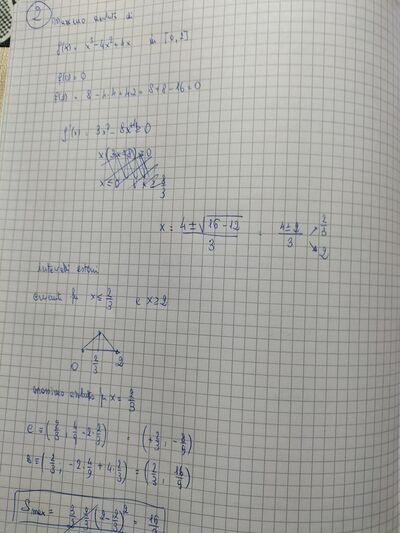 2 Massimo assoluto di
f(x) = x³ - 4x² + 4x in [0, 2]
f(0) = 0
f(2) = 8 - 4·4 + 4·2 = 8 + 8 - 16 = 0
f'(x) = 3x² - 8x + 4 ≥ 0
x ≤ 0
x = (4 ± √(16 - 12))/3 = (4 ± 2)/3 → 2/3
→ 2
crescente per x ≤ 2/3 e x ≥ 2
0 2/3 2
massimo assoluto per x = 2/3
C = (2/3, 4/9 - 2·2/3) = (+2/3, -8/9)
B = (2/3, -2·4/9 + 4·2/3) = (2/3, 16/9)
Smax = 3/2 · 2/3 (2 - 2/3)² = 16/9